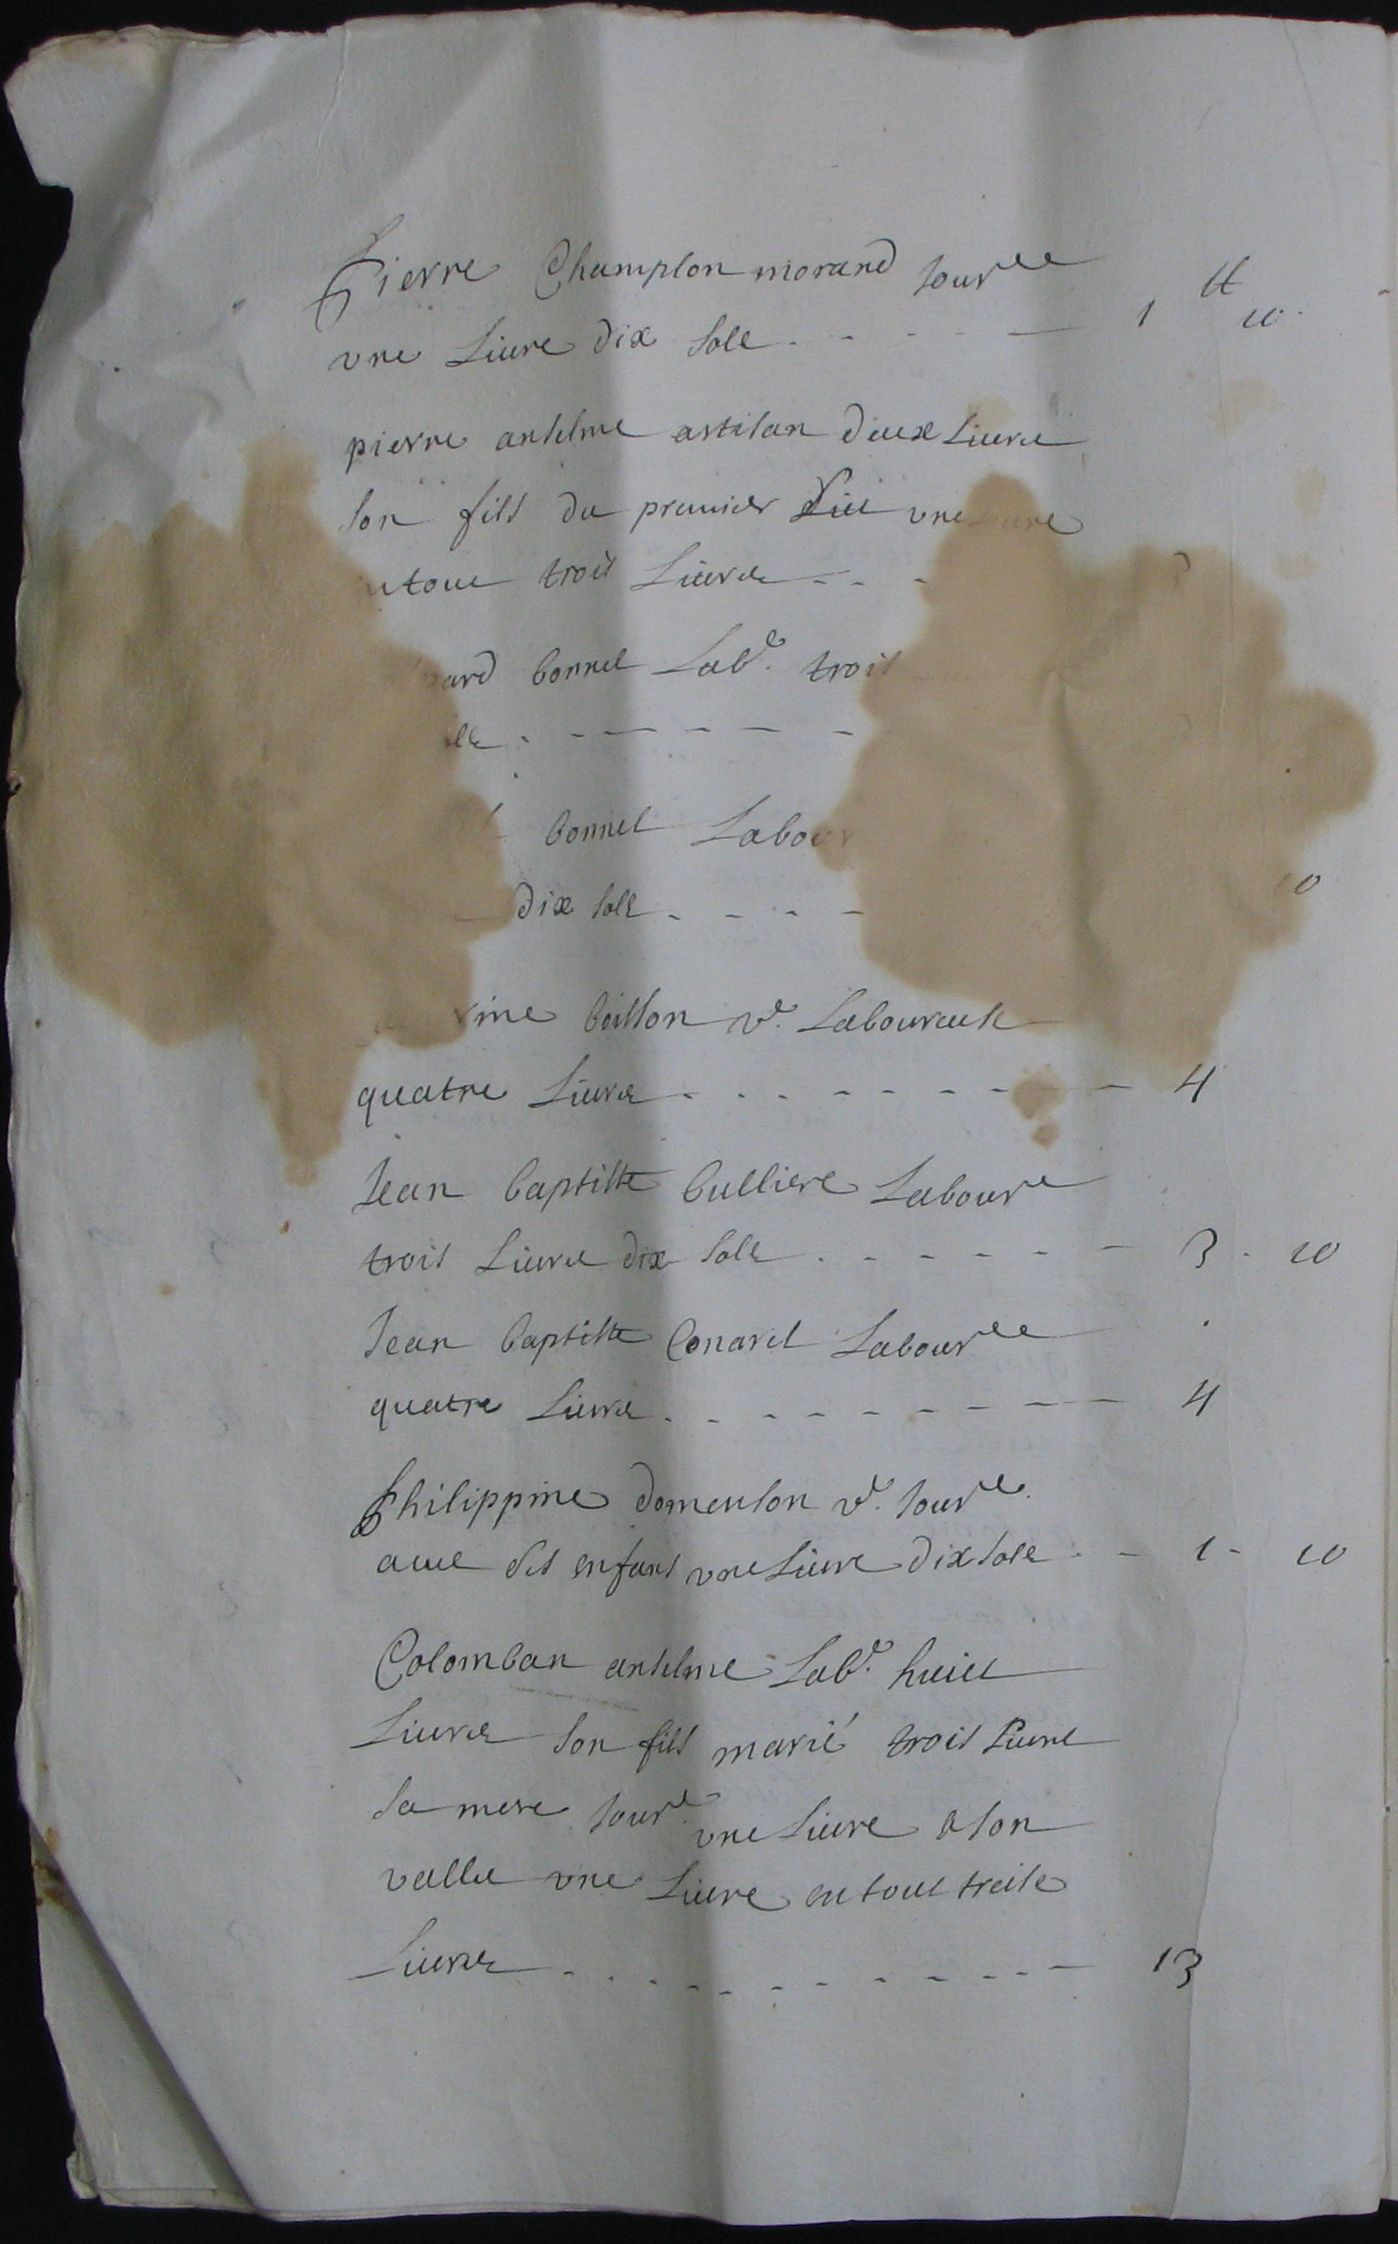 Pierre Champion morand Jourlle
une Livre dix sols - - - - 1 tt 10
pierre anselme artisan deux Livres
son fils du premier Lict une
trois Livres - - -
bonnel Labr. trois
- - - - - -
bonnel Labour
dix sols - - - - 10
boillon ve. Laboureuse
quatre Livres - - - - - - - - 4
Jean baptiste bulliere Laboure
trois Livres dix sols - - - - - - 3 - 10
Jean baptiste Conavel Labourlle
quatre Livres - - - - - - - - 4
Philippine domenson ve. Jourle
avec ses enfans une Livre dix sols - - 1 - 10
Colomban anselme Labr. huict
Livres son fils marié trois Livres
sa mere Jourle. une Livre & son
vallet une Livre en tout treise
Livres - - - - - - - - - - - 13